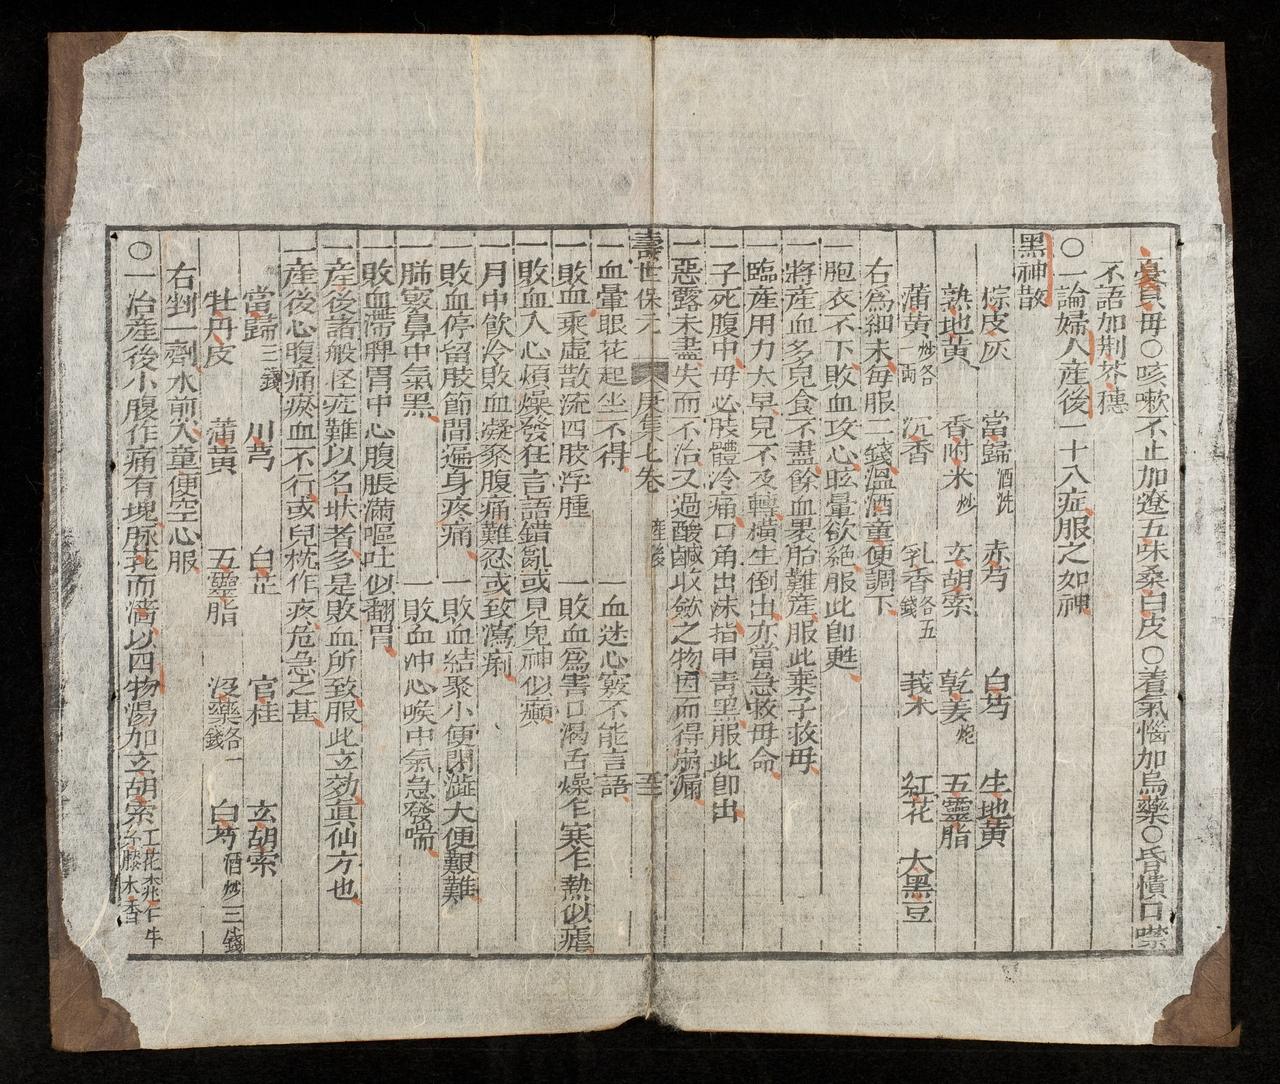 蔞貝毋〇咳嗽不止加遼五味桑白皮〇着氣惱加烏藥〇昏憒口噤
不語加荆芥穗
〇一論婦人産後一十八症服之如神
黑神散
棕皮灰 當歸酒洗 赤芍 白芍 生地黃
熟地黃 香附米炒 玄胡索 乾姜炮 五靈脂
蒲黃炒各二両 沉香 乳香各五錢 莪朮 紅花 大黑豆
右為細末每服二錢溫酒童便調下
一胞衣不下敗血攻心眩暈欲絕服此卽甦
一將産血多兒食不盡餘血裹胎難産服此棄子救毋
一臨産用力大早兒不及轉橫生倒出亦當急救毋命
一子死腹中毋必肢體冷痛口角出沫指甲青黑服此卽出
一惡露未盡失而不治又過酸鹹收斂之物因而得崩漏
壽世保元 庚集七卷 産後 五
一血暈眼花起坐不得 一血迷心竅不能言語
一敗血乘虛散流四肢浮腫 一敗血為害口渴舌燥乍寒乍熱似瘧
一敗血入心煩燥發狂言語錯亂或見鬼神似癲
一月中飲冷敗血凝聚腹痛難忍或致瀉痢
一敗血停留肢節間遍身疼痛 一敗血結聚小便閉澁大便艱難
一腨竅鼻中氣黑 一敗血冲心喉中氣急發喘
一敗血滯脾胃中心腹脹滿嘔吐似翻胃
一産後諸般怪症難以名狀者多是敗血所致服此立効眞仙方也
一産後心腹痛瘀血不行或兒枕作疼危急之甚
當歸三錢 川芎 白芷 官桂 玄胡索
牡丹皮 蒲黃 五靈脂 沒藥各一錢 白芍酒炒三錢
右剉一劑水煎入童便空心服
〇一治産後小腹作痛有塊脉芤而濇以四物湯加玄胡索紅花桃仁牛膝木香